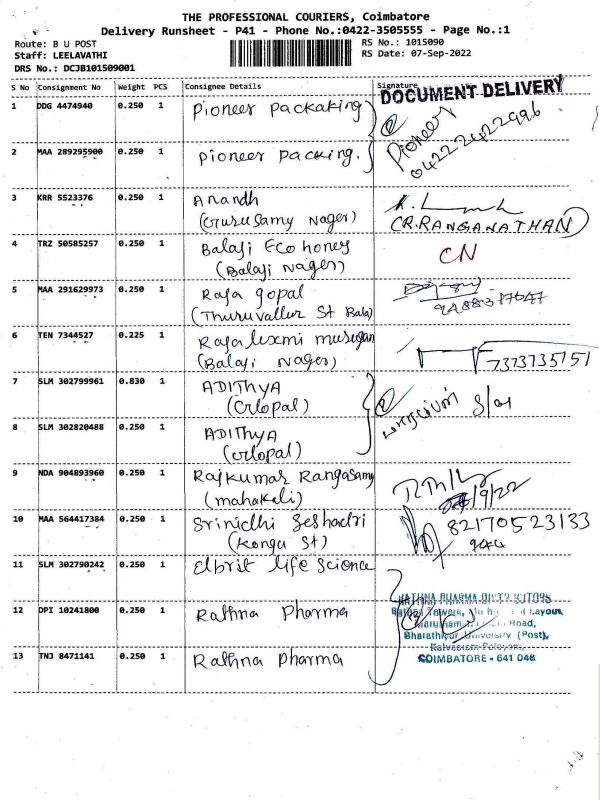 THE PROFESSIONAL COURIERS, Coimbatore
Delivery Runsheet - P41 - Phone No.:0422-3505555 - Page No.:1
Route: B U POST
RS No.: 1015090
Staff: LEELAVATHI
RS Date: 07-Sep-2022
DRS No.: DCJB101509001
S No Consignment No Weight PCS Consignee Details Signature
DOCUMENT DELIVERY
1 DDG 4474940 0.250 1 Pioneer Packaking
Pioneer
04222422996
2 MAA 289295900 0.250 1 Pioneer Packing.
3 KRR 5523376 0.250 1 Anandh
(Gurusamy Nager)
(R.RANGANATHAN)
4 TRZ 50585257 0.250 1 Balaji Eco honey
(Balaji Nager)
CN
5 MAA 291629973 0.250 1 Raja gopal
(Thuruvallur St Bala)
6 TEN 7344527 0.225 1 Raja laxmi murugan
(Balaji Nager)
7373735151
7 SLM 302799961 0.830 1 ADITHYA
(Orlopal)
8 SLM 302820488 0.250 1 ADITHYA
(Orlopal)
9 NDA 904893960 0.250 1 Rajkumar Rangasamy
(mahakali)
10 MAA 564417384 0.250 1 Srinidhi Seshadri
(Konga St)
82170523133
11 SLM 302790242 0.250 1 Elbrit life Science
12 DPI 10241800 0.250 1 Rathna Pharma
RATHNA PHARMA DISTRIBUTORS
Road,
Bharathiyar University (Post),
COIMBATORE - 641 046
13 TNJ 8471141 0.250 1 Rathna Pharma